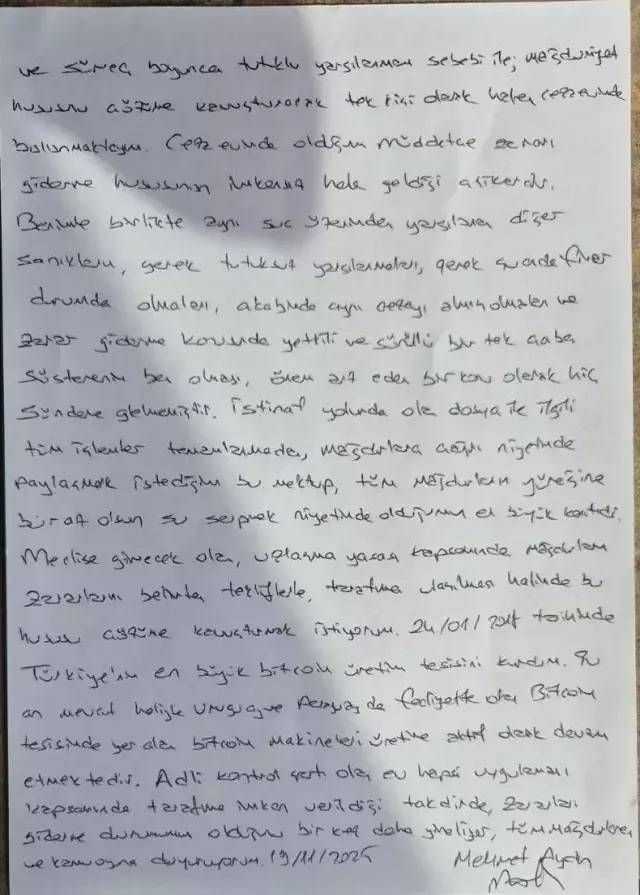 ve süreç boyunca tutuklu yargılanmam sebebi ile; mağduriyet
hususunu çözüme kavuşturacak tek kişi olarak halen cezaevinde
bulunmaktayım. Cezaevinde olduğum müddetçe zararı
giderme hususunun imkansız hale geldiği aşikardır.
Benimle birlikte aynı suç üzerinden yargılanan diğer
sanıkların, gerek tutuksuz yargılanmaları, gerek şuanda firar
durumda olmaları, akabinde aynı cezayı almış olmaları ve
zarar giderme konusunda yetkili ve sürekli bir tek çaba
gösterenin ben olması, önem arz eden bir konu olarak hiç
gündeme gelmemiştir. İstinaf yolunda olan dosya ile ilgili
tüm işlemler tamamlanmadan, mağdurlara çağrı niyetinde
paylaşmak istediğim bu mektup, tüm mağdurların yüreğine
biraz olsun su serpmek niyetinde olduğumun en büyük kanıtıdır.
Meclise girecek olan, uzlaşma yasası kapsamında mağdurların
zararlarını belirten tekliflerle, tarafıma ulaşılması halinde bu
hususu çözüme kavuşturmak istiyorum. 24/01/2018 tarihinde
Türkiye'nin en büyük bitcoin üretim tesisini kurdum. Şu
an mevcut haliyle Uruguay ve Paraguay da faaliyette olan Bitcoin
tesisinde yer alan bitcoin makineleri üretime aktif olarak devam
etmektedir. Adli kontrol şartı olan ev hapsi uygulaması
kapsamında tarafıma imkan verildiği takdirde, zararları
giderme durumumun olduğunu bir kez daha yineliyor, tüm mağdurlara
ve kamuoyuna duyuruyorum. 19/11/2025 Mehmet Aydın